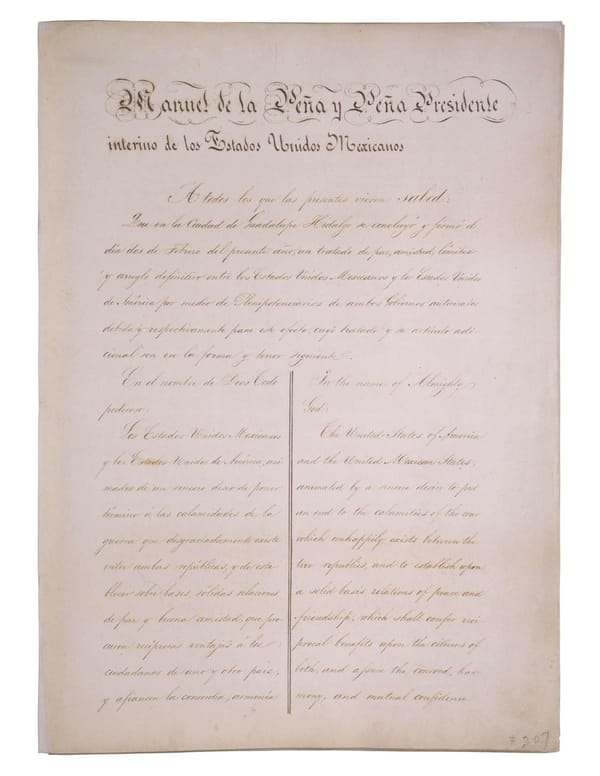 Manuel de la Peña y Peña Presidente
interino de los Estados Unidos Mexicanos
A todos los que las presentes vieren sabed:
Que en la Ciudad de Guadalupe Hidalgo se concluyó y firmó el
dia dos de Febrero del presente año, un tratado de paz, amistad, límites
y arreglo definitivo entre los Estados Unidos Mexicanos y los Estados Unidos
de América por medio de Plenipotenciarios de ambos Gobiernos autorizados
debida y respectivamente para este efecto, cuyo tratado y su artículo adi-
cional son en la forma y tenor siguiente.
En el nombre de Dios Todo
poderoso:
Los Estados Unidos Mexicanos
y los Estados Unidos de América, ani
mados de un sincero deseo de poner
término á las calamidades de la
guerra que desgraciadamente existe
entre ambas repúblicas, y de esta
blecer sobre bases sólidas relaciones
de paz y buena amistad, que pro
curen recíprocas ventajas á los
ciudadanos de uno y otro pais,
y afiancen la concordia, armonía
In the name of Almighty
God:
The United States of America
and the United Mexican States,
animated by a sincere desire to put
an end to the calamities of the war
which unhappily exists between the
two republics, and to establish upon
a solid basis relations of peace and
friendship, which shall confer reci
procal benefits upon the citizens of
both, and assure the concord, har
mony, and mutual confidence
# 207